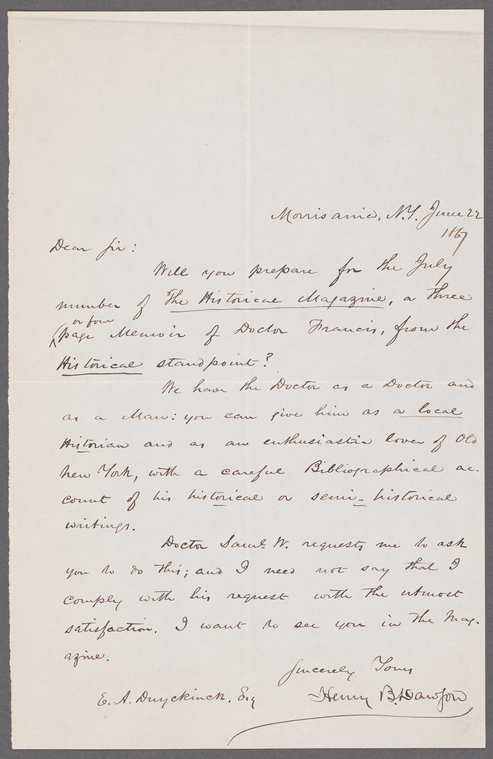 Morrisania, N.Y. June 22
1867
Dear Sir:
Will you prepare for the July
number of The Historical Magazine, a three
or four
page Memoir of Doctor Francis, from the
Historical standpoint?
We have the Doctor as a Doctor and
as a Man: you can give him as a local
Historian and as an enthusiastic lover of Old
New York, with a careful Bibliographical ac-
count of his historical or semi-historical
writings.
Doctor Saml. W. requests me to ask
you to do this; and I need not say that I
comply with his request with the utmost
satisfaction. I want to see you in the Mag-
azine.
Sincerely Yours
E. A. Duyckinck, Esq
Henry B. Dawson